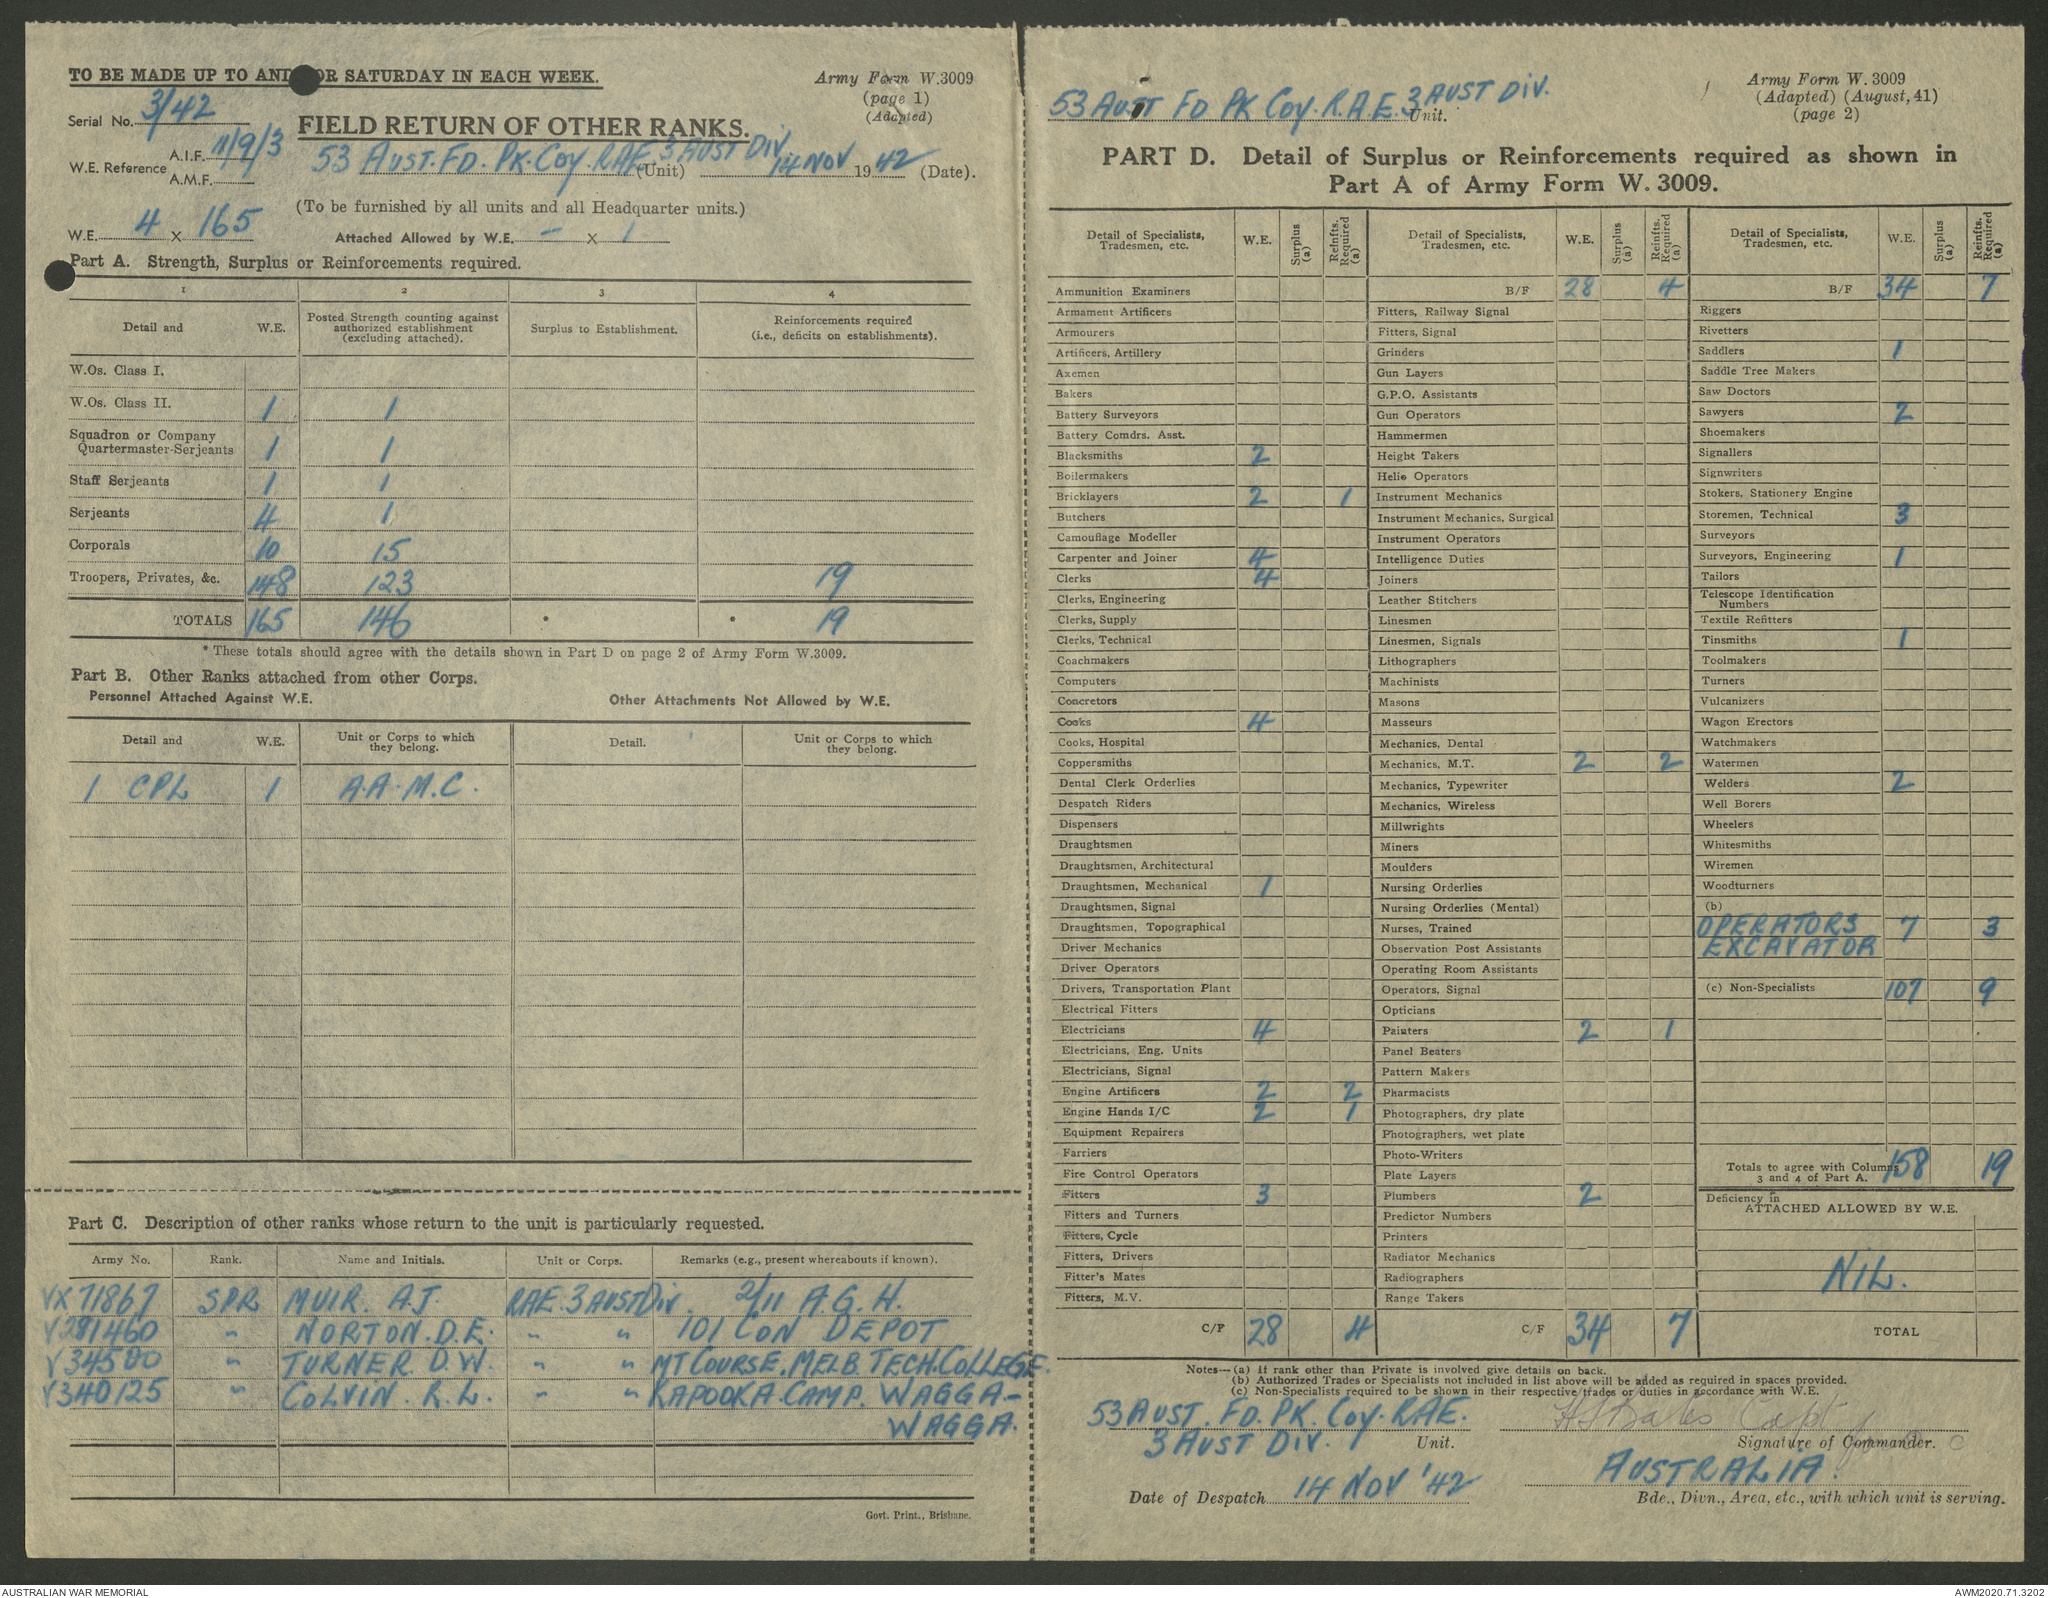 TO BE MADE UP TO AND FOR SATURDAY IN EACH WEEK.
Army Form W.3009
(page 1)
(Adapted)
Serial No. 3/42
FIELD RETURN OF OTHER RANKS.
W.E. Reference A.I.F. 11/9/3
A.M.F.
53 AUST. FD. PK. COY. RAE. 3 AUST DIV. (Unit) 14 NOV 1942 (Date).
(To be furnished by all units and all Headquarter units.)
W.E. 4 x 165 Attached Allowed by W.E. - x 1
Part A. Strength, Surplus or Reinforcements required.
1 2 3 4
Detail and W.E. Posted Strength counting against authorized establishment (excluding attached). Surplus to Establishment. Reinforcements required (i.e., deficits on establishments).
W.Os. Class I.
W.Os. Class II. 1 1
Squadron or Company
Quartermaster-Serjeants 1 1
Staff Serjeants 1 1
Serjeants 4 1
Corporals 10 15
Troopers, Privates, &c. 148 123 19
TOTALS 165 146 * * 19
* These totals should agree with the details shown in Part D on page 2 of Army Form W.3009.
Part B. Other Ranks attached from other Corps.
Personnel Attached Against W.E. Other Attachments Not Allowed by W.E.
Detail and W.E. Unit or Corps to which they belong. Detail. Unit or Corps to which they belong.
1 CPL 1 A.A.M.C.
Part C. Description of other ranks whose return to the unit is particularly requested.
Army No. Rank. Name and Initials. Unit or Corps. Remarks (e.g., present whereabouts if known).
VX71867 SPR MUIR. A.J. RAE. 3 AUST Div. 2/11 A.G.H.
V281460 " NORTON. D.E. " " 101 CON DEPOT
V34500 " TURNER. D.W. " " MT COURSE. MELB. TECH. COLLEGE.
V340125 " COLVIN. R.L. " " KAPOOKA. CAMP. WAGGA-
WAGGA.
Govt. Print., Brisbane.
53 AUST FD PK COY. R.A.E. 3 AUST DIV. Unit.
Army Form W. 3009
(Adapted) (August, 41)
(page 2)
PART D. Detail of Surplus or Reinforcements required as shown in
Part A of Army Form W. 3009.
Detail of Specialists, Tradesmen, etc. W.E. Surplus (a) Reinfts. Required (a)
Ammunition Examiners
Armament Artificers
Armourers
Artificers, Artillery
Axemen
Bakers
Battery Surveyors
Battery Comdrs. Asst.
Blacksmiths 2
Boilermakers
Bricklayers 2 1
Butchers
Camouflage Modeller
Carpenter and Joiner 4
Clerks 4
Clerks, Engineering
Clerks, Supply
Clerks, Technical
Coachmakers
Computers
Concretors
Cooks 4
Cooks, Hospital
Coppersmiths
Dental Clerk Orderlies
Despatch Riders
Dispensers
Draughtsmen
Draughtsmen, Architectural
Draughtsmen, Mechanical 1
Draughtsmen, Signal
Draughtsmen, Topographical
Driver Mechanics
Driver Operators
Drivers, Transportation Plant
Electrical Fitters
Electricians 4
Electricians, Eng. Units
Electricians, Signal
Engine Artificers 2 2
Engine Hands I/C 2 1
Equipment Repairers
Farriers
Fire Control Operators
Fitters 3
Fitters and Turners
Fitters, Cycle
Fitters, Drivers
Fitter's Mates
Fitters, M.V.
C/F 28 4
Detail of Specialists, Tradesmen, etc. W.E. Surplus (a) Reinfts. Required (a)
B/F 28 4
Fitters, Railway Signal
Fitters, Signal
Grinders
Gun Layers
G.P.O. Assistants
Gun Operators
Hammermen
Height Takers
Helio Operators
Instrument Mechanics
Instrument Mechanics, Surgical
Instrument Operators
Intelligence Duties
Joiners
Leather Stitchers
Linesmen
Linesmen, Signals
Lithographers
Machinists
Masons
Masseurs
Mechanics, Dental
Mechanics, M.T. 2 2
Mechanics, Typewriter
Mechanics, Wireless
Millwrights
Miners
Moulders
Nursing Orderlies
Nursing Orderlies (Mental)
Nurses, Trained
Observation Post Assistants
Operating Room Assistants
Operators, Signal
Opticians
Painters 2 1
Panel Beaters
Pattern Makers
Pharmacists
Photographers, dry plate
Photographers, wet plate
Photo-Writers
Plate Layers
Plumbers 2
Predictor Numbers
Printers
Radiator Mechanics
Radiographers
Range Takers
C/F 34 7
Detail of Specialists, Tradesmen, etc. W.E. Surplus (a) Reinfts. Required (a)
B/F 34 7
Riggers
Rivetters
Saddlers 1
Saddle Tree Makers
Saw Doctors
Sawyers 2
Shoemakers
Signallers
Signwriters
Stokers, Stationery Engine
Storemen, Technical 3
Surveyors
Surveyors, Engineering 1
Tailors
Telescope Identification
Numbers
Textile Refitters
Tinsmiths 1
Toolmakers
Turners
Vulcanizers
Wagon Erectors
Watchmakers
Watermen
Welders 2
Well Borers
Wheelers
Whitesmiths
Wiremen
Woodturners
(b)
OPERATORS 7 3
EXCAVATOR
(c) Non-Specialists 107 9
Totals to agree with Columns 3 and 4 of Part A. 158 19
Deficiency in
ATTACHED ALLOWED BY W.E.
NIL.
TOTAL
Notes—(a) If rank other than Private is involved give details on back.
(b) Authorized Trades or Specialists not included in list above will be added as required in spaces provided.
(c) Non-Specialists required to be shown in their respective trades or duties in accordance with W.E.
53 AUST. FD. PK. COY. RAE.
3 AUST DIV. Unit.
Capt
Signature of Commander.
AUSTRALIA.
Date of Despatch 14 NOV '42
Bde., Divn., Area, etc., with which unit is serving.
AUSTRALIAN WAR MEMORIAL
AWM2020.71.3202